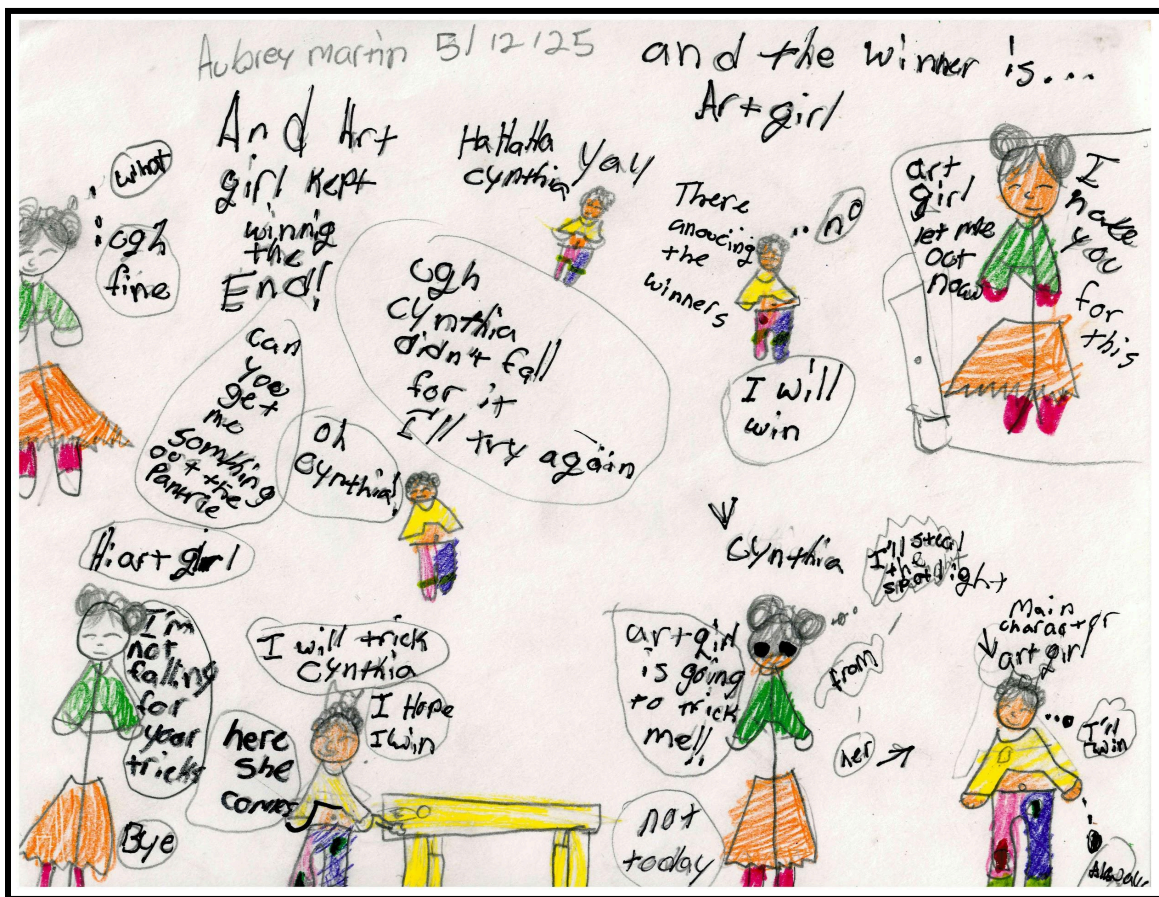 Aubrey martin 5/12/25
and the winner is...
Art girl
what
ugh
fine
And Art
girl kept
winnig
the
End!
HaHaHa
cynthia
Yay
There
anoucing
the
winners
no
I will
win
art
girl
let me
out
now
I
hate
you
for
this
can
you
get
me
somthing
out the
pantrie
oh
cynthia!
ugh
cynthia
didn't fall
for it
I'll try again
Hi art girl
I'm
not
falling
for
your
tricks
Bye
I will trick
cynthia
I Hope
I win
here
she
comes
cynthia
I'll steal
the
spotlight
from
her
art girl
is going
to trick
me!!
not
today
Main
charactor
art girl
I'll
win
Always